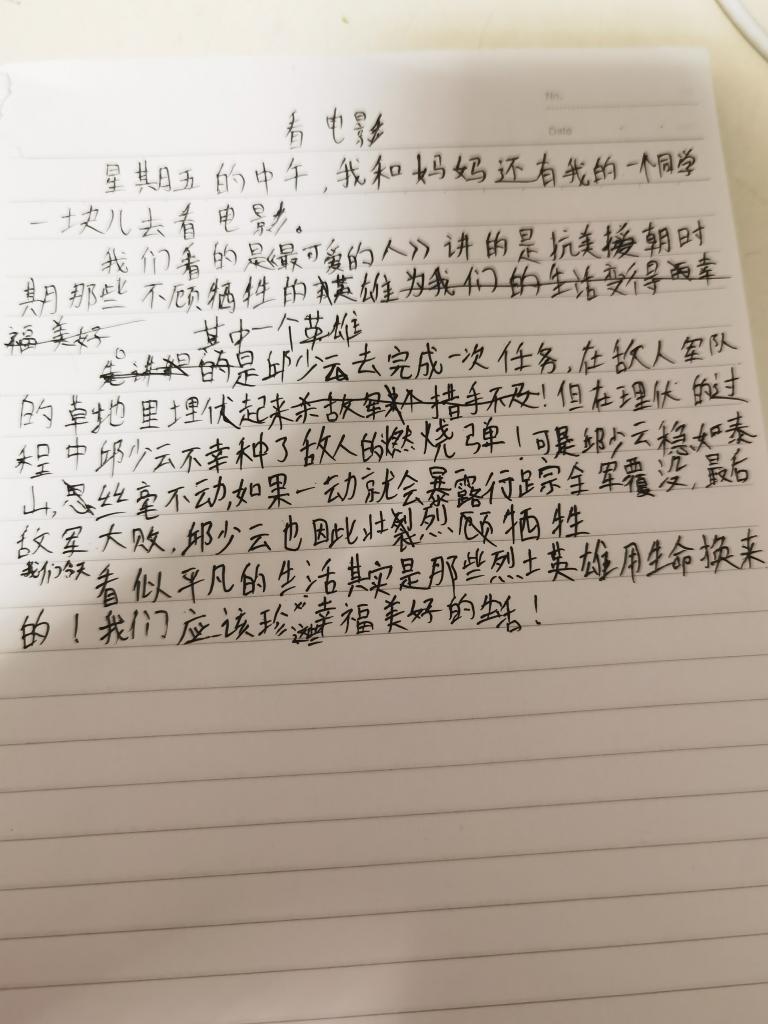 No.
Date
看电影
星期五的中午，我和妈妈还有我的一个同学
一块儿去看电影。
我们看的是《最可爱的人》讲的是抗美援朝时
期那些不顾牺牲的英雄为我们的生活变得幸
福美好。
其中一个英雄
的是邱少云去完成一次任务，在敌人军队
的草地里埋伏起来杀敌军 措手不及！但在理伏的过
程中邱少云不幸种了敌人的燃烧弹！可是邱少云稳如泰
山，丝毫不动，如果一动就会暴露行踪全军覆没，最后
敌军大败，邱少云也因此壮烈牺牲
我们今天
看似平凡的生活其实是那些烈士英雄用生命换来
的！我们应该珍 这些幸福美好的生活！